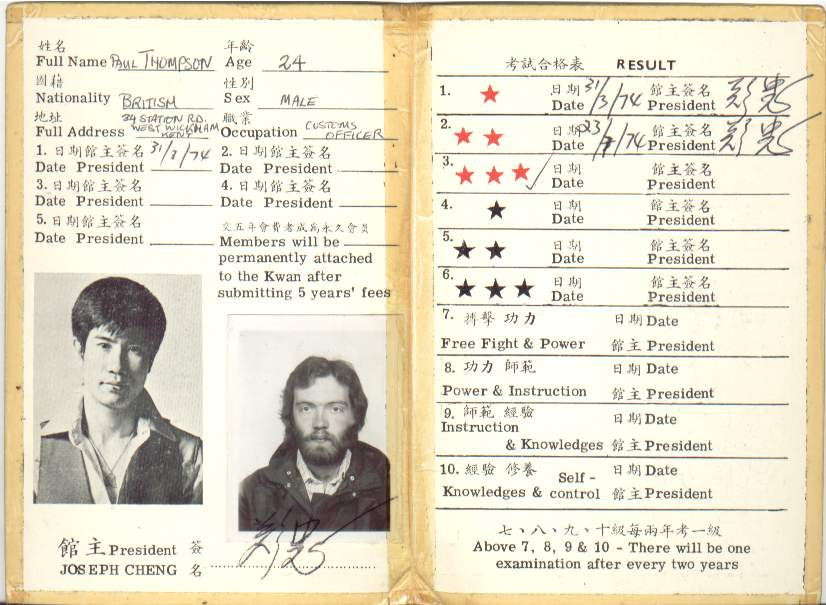 姓名
Full Name PAUL THOMPSON
年齡
Age 24
國籍
Nationality BRITISH
性別
Sex MALE
地址
Full Address 34 STATION RD.
WEST WICKHAM
KENT
職業
Occupation CUSTOMS
OFFICER
1. 日期館主簽名
Date President 31/3/74
2. 日期館主簽名
Date President
3. 日期館主簽名
Date President
4. 日期館主簽名
Date President
5. 日期館主簽名
Date President
交五年會費者成為永久會員
Members will be
permanently attached
to the Kwan after
submitting 5 years' fees
館主 President 簽
JOSEPH CHENG 名
考試合格表 RESULT
1. ★ 日期 館主簽名
Date 31/3/74 President
2. ★★ 日期 館主簽名
Date President
3. ★★★ ✓ 日期 館主簽名
Date President
4. ★ 日期 館主簽名
Date President
5. ★★ 日期 館主簽名
Date President
6. ★★★ 日期 館主簽名
Date President
7. 搏擊 功力 日期 Date
Free Fight & Power 館主 President
8. 功力 師範 日期 Date
Power & Instruction 館主 President
9. 師範 經驗 日期 Date
Instruction
& Knowledges 館主 President
10. 經驗 修養 Self - 日期 Date
Knowledges & control 館主 President
七、八、九、十級每兩年考一級
Above 7, 8, 9 & 10 - There will be one
examination after every two years